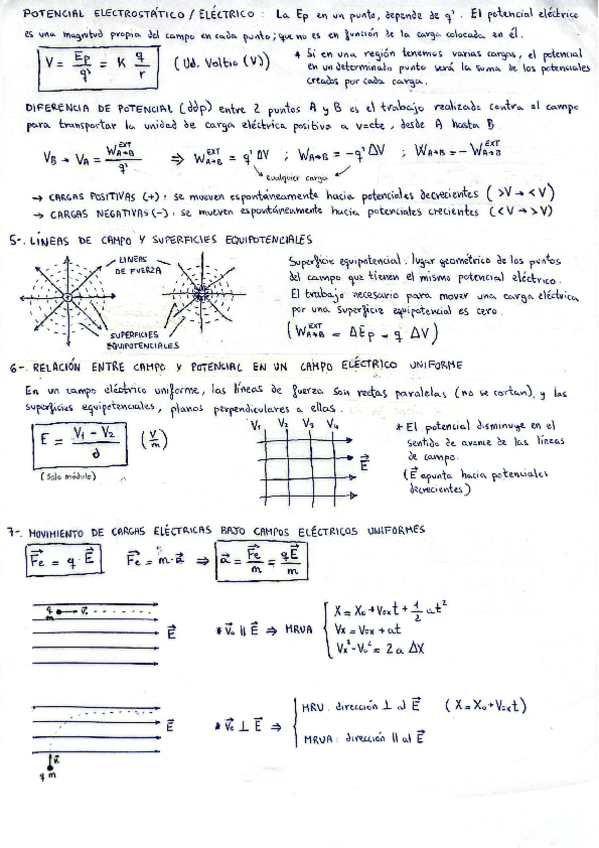 POTENCIAL ELECTROSTÁTICO / ELÉCTRICO : La Ep en un punto, depende de q'. El potencial eléctrico
es una magnitud propia del campo en cada punto; que no es en función de la carga colocada en él.
V = Ep/q' = K q/r (Ud. Voltio (V))
* Si en una región tenemos varias cargas, el potencial
en un determinado punto será la suma de los potenciales
creados por cada carga.
DIFERENCIA DE POTENCIAL (ddp) entre 2 puntos A y B es el trabajo realizado contra el campo
para transportar la unidad de carga eléctrica positiva a v=cte, desde A hasta B.
V_B - V_A = W^EXT_A→B / q' ⇒ W^EXT_A→B = q' ΔV ; W_A→B = -q' ΔV ; W_A→B = -W^EXT_A→B
cualquier carga
→ CARGAS POSITIVAS (+): se mueven espontáneamente hacia potenciales decrecientes (>V → <V)
→ CARGAS NEGATIVAS (-): se mueven espontáneamente hacia potenciales crecientes (<V → >V)
5-. LÍNEAS DE CAMPO Y SUPERFICIES EQUIPOTENCIALES
LINEAS
DE FUERZA
SUPERFICIES
EQUIPOTENCIALES
Superficie equipotencial: lugar geométrico de los puntos
del campo que tienen el mismo potencial eléctrico.
El trabajo necesario para mover una carga eléctrica
por una superficie equipotencial es cero.
(W^EXT_A→B = ΔEp = q ΔV)
6-. RELACIÓN ENTRE CAMPO Y POTENCIAL EN UN CAMPO ELÉCTRICO UNIFORME
En un campo eléctrico uniforme, las líneas de fuerza son rectas paralelas (no se cortan), y las
superficies equipotenciales, planos perpendiculares a ellas.
E = (V1 - V2)/d (V/m)
(Solo módulo)
V1 V2 V3 V4
E⃗
* El potencial disminuye en el
sentido de avance de las líneas
de campo.
(E⃗ apunta hacia potenciales
decrecientes)
7-. MOVIMIENTO DE CARGAS ELÉCTRICAS BAJO CAMPOS ELÉCTRICOS UNIFORMES
F⃗e = q · E⃗ F⃗e = m·a⃗ ⇒ a⃗ = F⃗e/m = qE⃗/m
q m V⃗o E⃗
* V⃗o ∥ E⃗ ⇒ MRUA
X = Xo + Vox t + 1/2 at²
Vx = Vox + at
Vx² - Vo² = 2 a ΔX
E⃗
q m
* V⃗o ⊥ E⃗ ⇒
MRU: dirección ⊥ al E⃗ (X = Xo + Vox t)
MRUA: dirección ∥ al E⃗